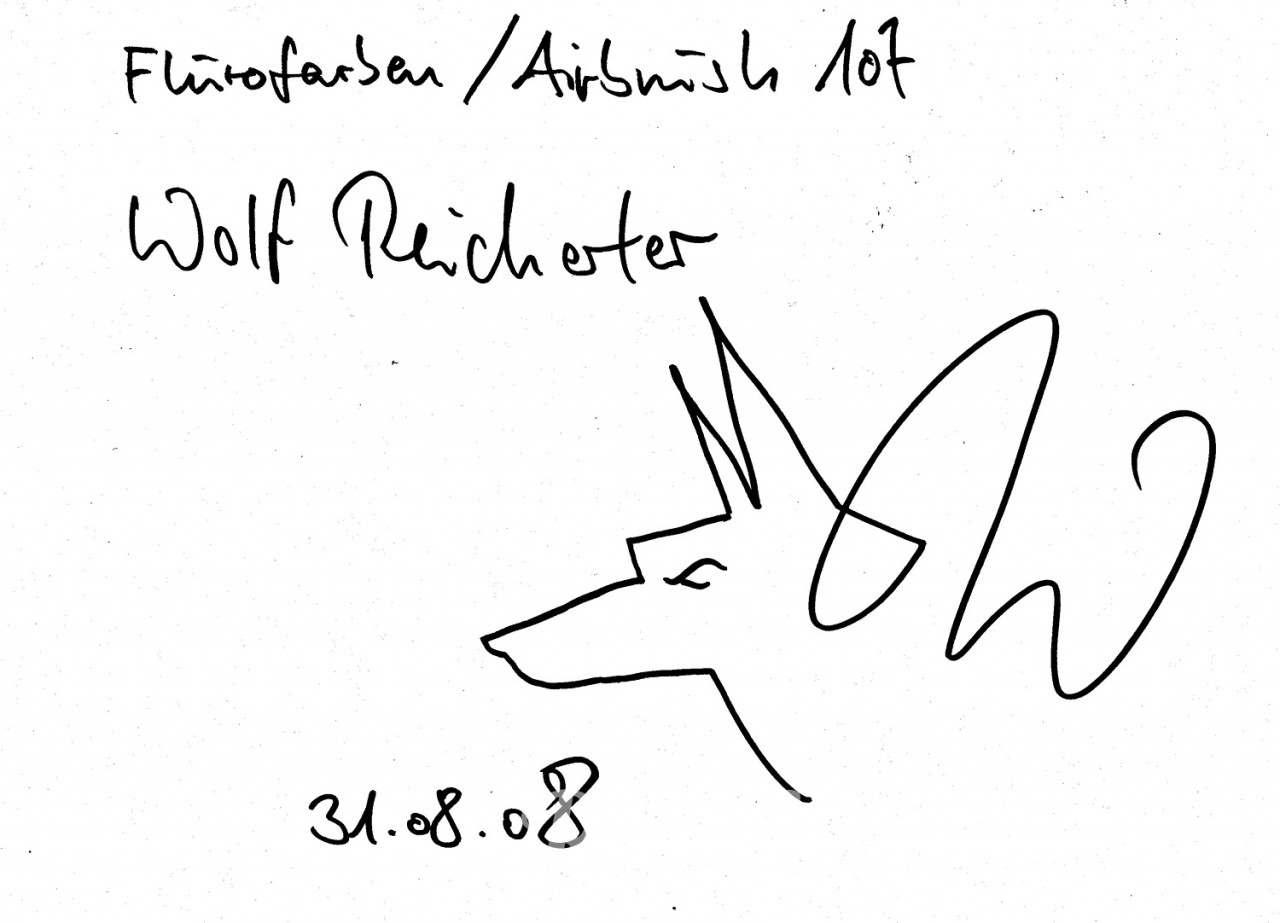 Flürofarben / Airbrush 107
Wolf Reicherter
31.08.08